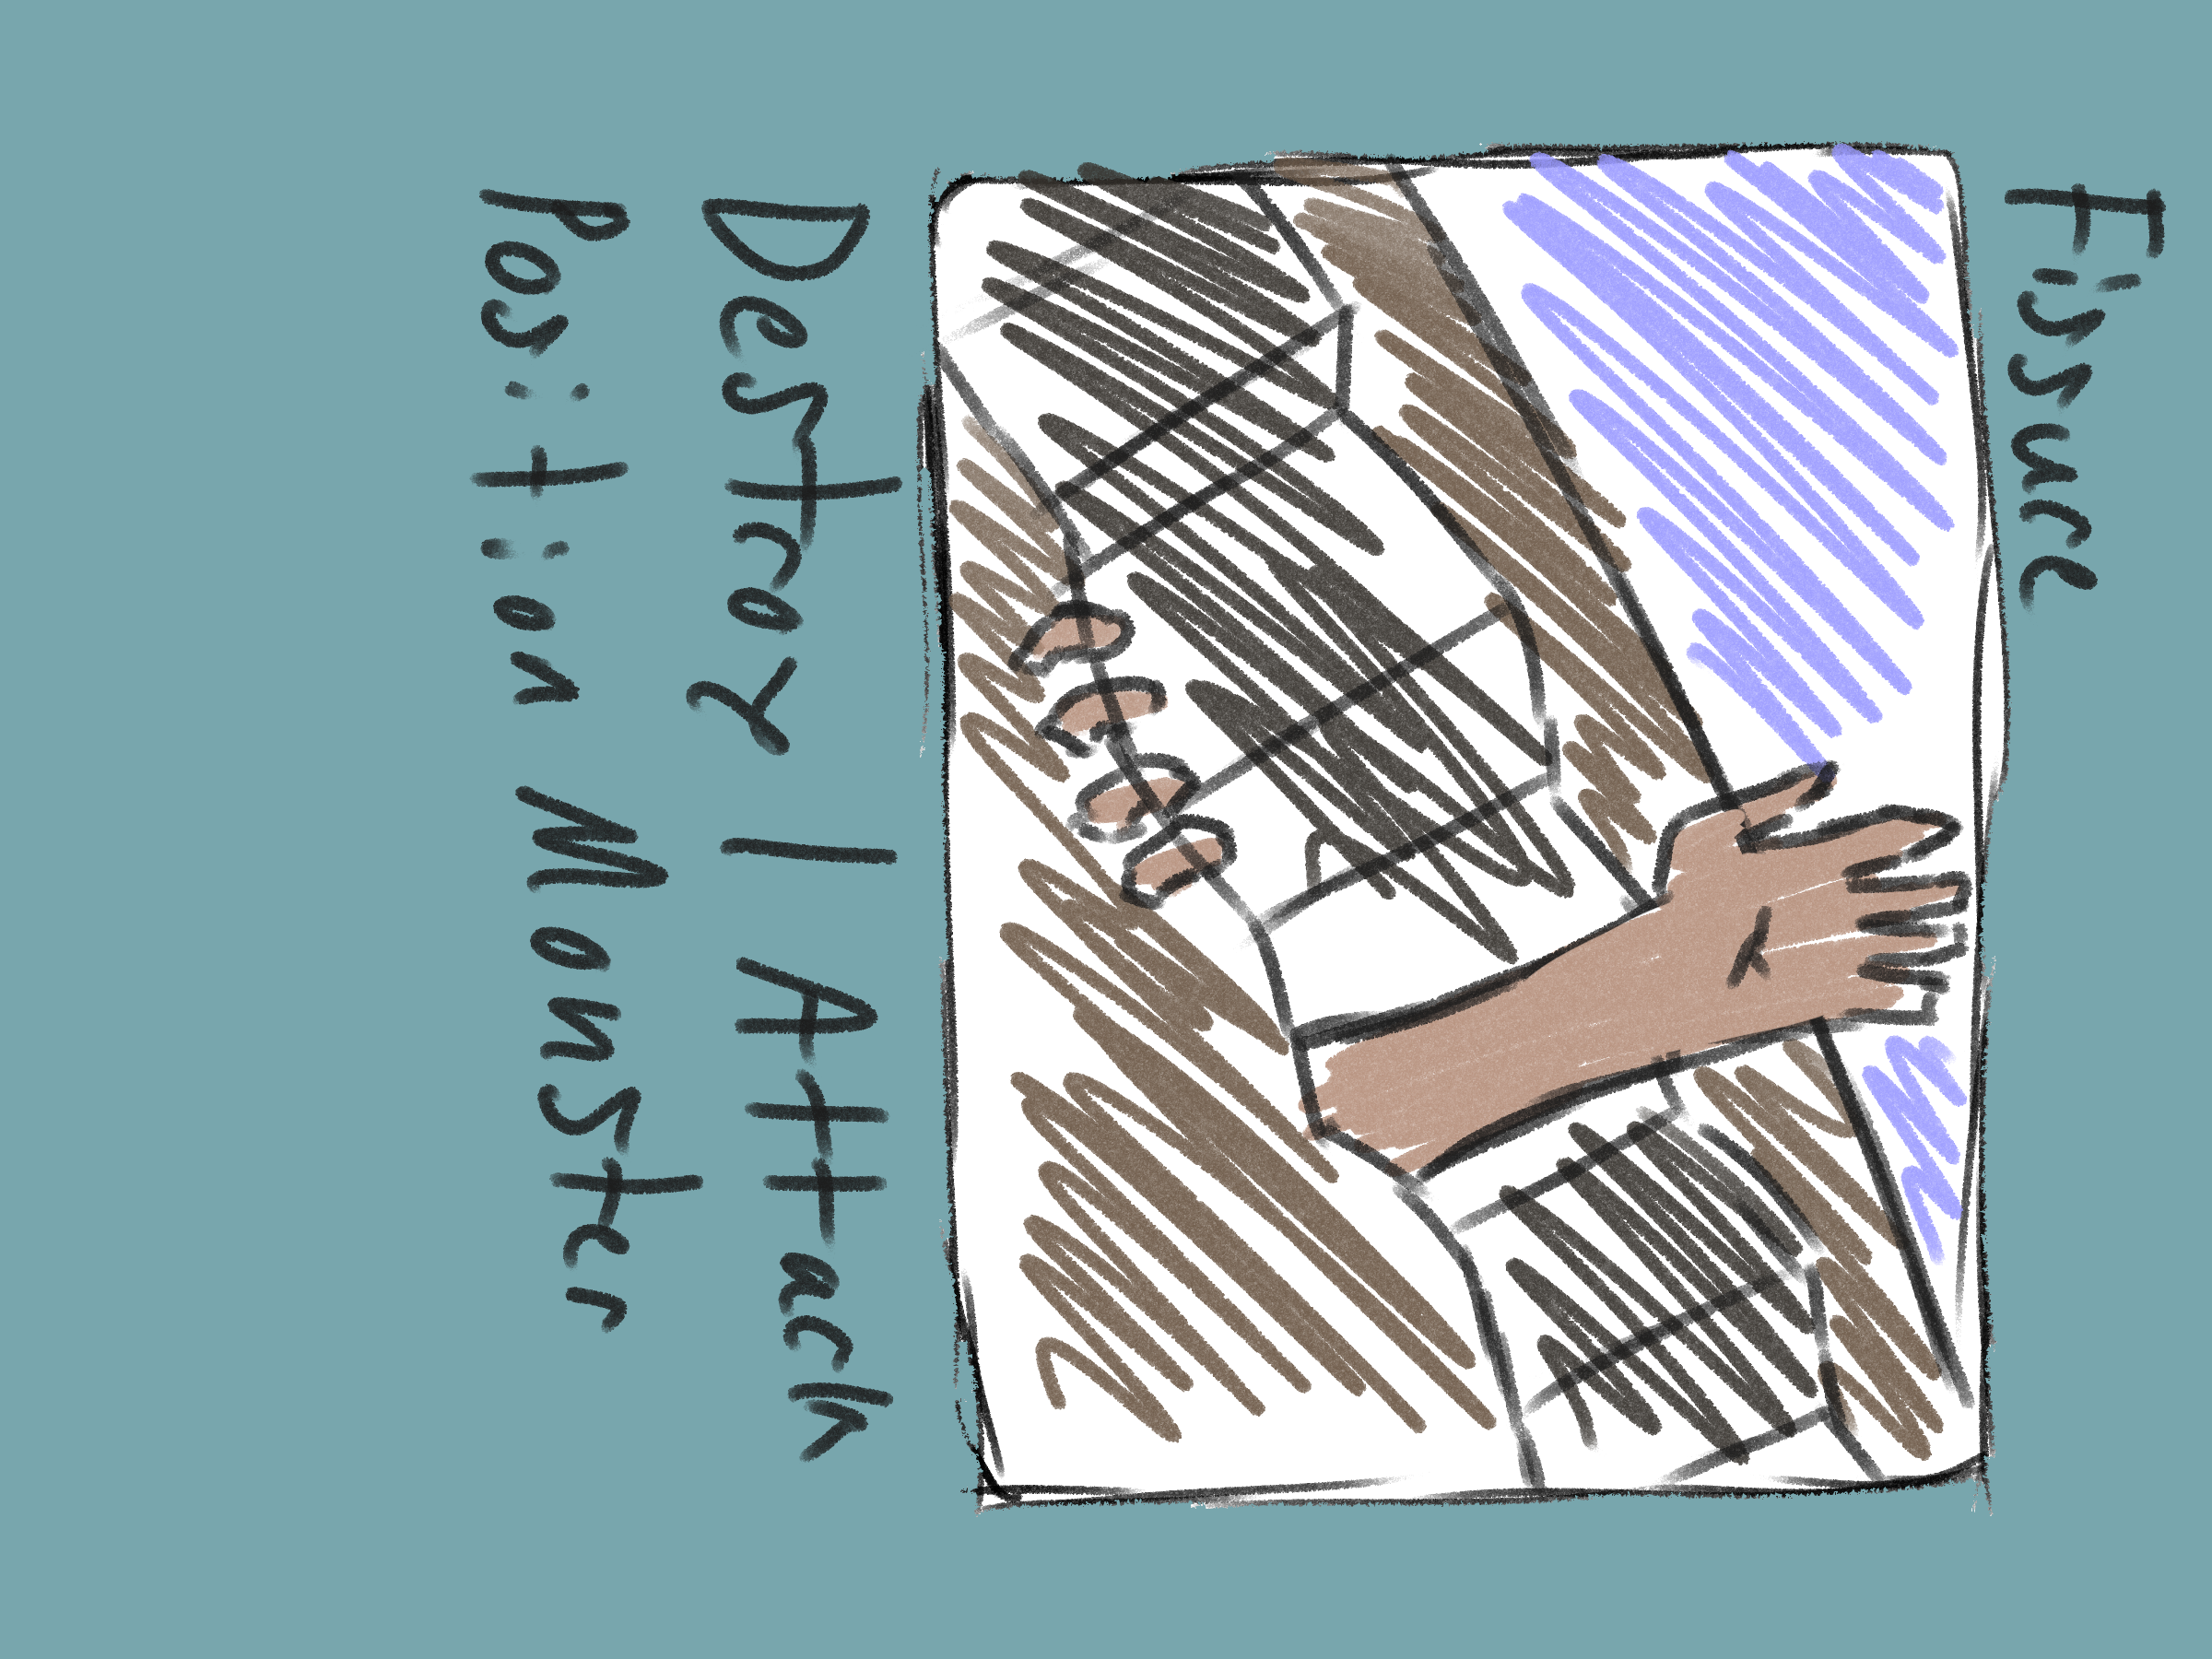 Fissure
Destroy 1 Attack
Position Monster